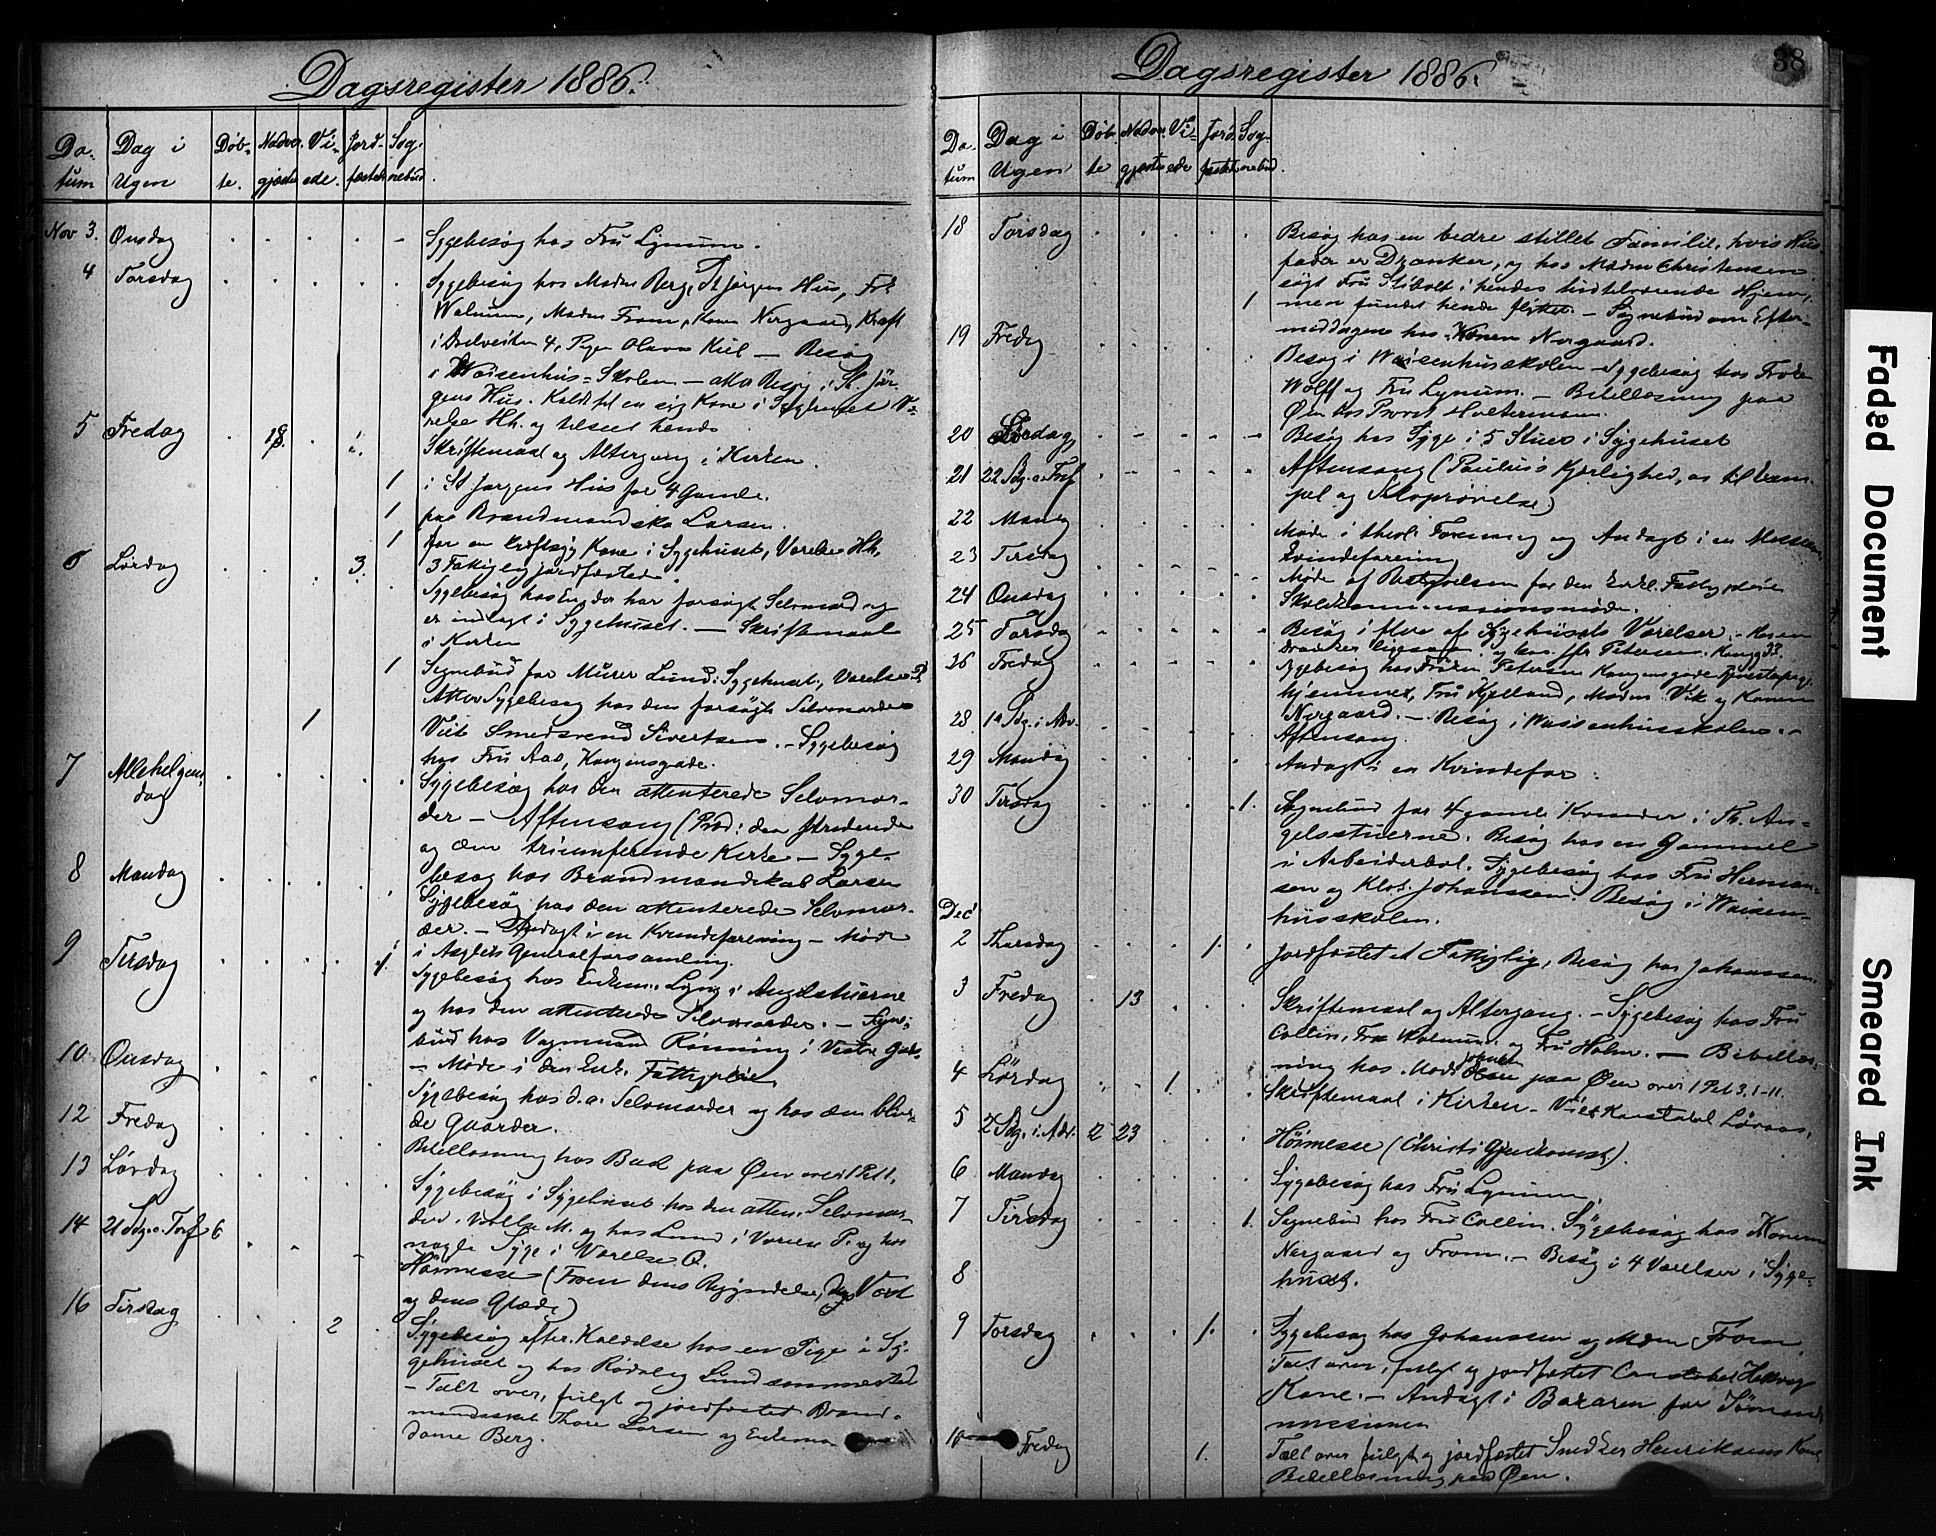 Dagsregister 1886.
Da-
tum
Dag i
Ugen
Døb-
te.
Nadver
gjæster
Vi-
ede.
Jord-
fæstede
Sog-
nebud.
Nov 3. Onsdag
Sygebesøg hos Fru Lynum.
4 Torsdag
Sygebesøg hos Madm Berg, St Jørgens Hus, Frk
Walnum, Madm From, Konen Nergaard, Kraft
i 4, Pigen Olava Kiil — Besøg
i Waisenhus-Skolen — atter Besøg i St. Jør-
gens Hus. Kaldt til en syg Kone i Sygehuset V-
relse Hh. og tilset hende
5 Fredag 18. 1.
Skriftemaal og Altergang i Kirken.
1 i St Jørgens Hus for 4 Gamle.
1 paa Brandmandska Larsen.
1 for en kræftsyg Kone i Sygehuset, Værelse Hh.
6 Lørdag 3.
3 Fattiglig jordfæstede.
Sygebesøg hos En, der har forsøgt Selvmord og
er indlagt i Sygehuset. — Skriftemaal
i Kirken
1 Sognebud for Murer Lund i Sygehuset, Værelse P
Atter Sygebesøg hos den forsøgte Selvmorder
1 Viet Smedsvend Sivertsen. — Sygebesøg
hos Fru Aas, Kongensgade.
7 Allehelgens
dag
Sygebesøg hos den attenterede Selvmor-
der — Aftensang (Præd: den stridende
og den triumferende Kirke — Syge-
besøg hos Brandmandskab Larsen
8 Mandag
Sygebesøg hos den attenterede Selvmor-
der. — Andagt i en Kvindeforening — Møde
i Asylets Generalforsamling.
9 Tirsdag 1.
Sygebesøg hos Enkem. Lyng i Angelstuerne
og hos den attenterede Selvmorder. — Sogne-
bud hos Vognmand Rønning i Vestre Gade
— Møde i den Enk. Fattigpleie
10. Onsdag
Sygebesøg hos d. a. Selvmorder og hos den blin-
de Gaarder.
12 Fredag
Bibellæsning hos Bud paa Øen over 1 Pet 1.
13 Lørdag
Sygebesøg i Sygehuset hos den atten. Selvmor-
der. Værelse M. og hos Lund i Værelse P. og hos
nogle Syge i Værelse Q.
14 21 Sdg. e. Tref 6
Høimesse (Troen dens Begyndelse, dens Væxt
og dens Glæde)
16 Tirsdag 2
Sygebesøg efter Kaldelse hos en Pige i Sy-
gehuset og hos Rødal og Lund sammested
— Talt over, fulgt og jordfæstet Brand-
mandsskab Thore Larsen og Enkema-
dame Berg.
Dagsregister 1886.
38
Da-
tum
Dag i
Ugen
Døb-
te
Nadver
gjæster
Vi-
ede
Jord-
fæstede
Sog-
nebud.
18 Torsdag
Besøg hos en bedre stillet Familie, hvis Hus-
fader er Dranker, og hos Madm Christensen
søgt Fru Stibolt i hendes tidtilværende Hjem,
1 men fundet hende flyttet. — Sognebud om Efter-
middagen hos Konen Nergaard.
19 Fredag
Besøg i Waisenhusskolen — Sygebesøg hos Frøken
Wolff og Fru Lynum. — Bibellæsning paa
Øen hos Provst Holtermann.
20 Lørdag
Besøg hos Syge i 5 Stuer i Sygehuset
21 22 Sdg. e. Tref
Aftensang (Paulus's Kjærlighed, os til Exem-
pel og Selvprøvelse)
22 Mandag
Møde i theol. Forening og Andagt i en Missions
Kvindeforening
23 Tirsdag
Møde af Bestyrelsen for den Enkl. Fattigpleie
24 Onsdag
Skolekommissionsmøde.
25 Torsdag
Besøg i flere af Sygehusets Værelser. — Hos en
Dranker ligesaa, og hos Petersen. Kongsg 33.
26 Fredag
Sygebesøg hos Frøken Petersen Kongensgade
hjemmet, Fru Kjelland, Madm Vik og Konen
Nergaard. — Besøg i Waisenhusskolen. —
28. 1e Sdg. i Adv.
Aftensang.
29 Mandag
Andagt i en Kvindefor.
30 Tirsdag 1.
Sognebud for 4 gamle Kvinder i Th. An-
gelsstuerne. Besøg hos en Gammel
i Arbeiderbol. Sygebesøg hos Fru Herman-
sen og Klok. Johanssen. Besøg i Waisen-
husskolen.
Dec
2 Thorsdag 1.
Jordfæstet et Fattiglig, Besøg hos Johanssen.
3 Fredag 13
Skriftemaal og Altergang. — Sygebesøg hos Fru
Collin, Frk Walnum og Fru Holm. — Bibellæs-
ning hos Mad. paa Øen over 1 Pet 3. 1-11.
4 Lørdag 1
Skriftemaal i Kirken. Viet Konstabel Løvaas.
5 2 Sdg. i Adv. 2 23
Høimesse (Christi Gjenkomst).
6 Mandag
Sygebesøg hos Fru Lynum.
7 Tirsdag 1.
Sognebud hos Fru Collin. Sygebesøg hos Konerne
Nergaard og From. — Besøg i 4 Værelser i Syge-
8
huset.
9 Torsdag 1.
Sygebesøg hos Johanssen og Mdm From.
Talt over, fulgt og jordfæstet Constabel
Kone. — Andagt i Bazaren for Sømands
missionen
10 Fredag 1.
Talt over fulgt og jordfæstet Snedker Henriksens Kone
Bibellæsning paa Øen.
Faded Document
Smeared Ink